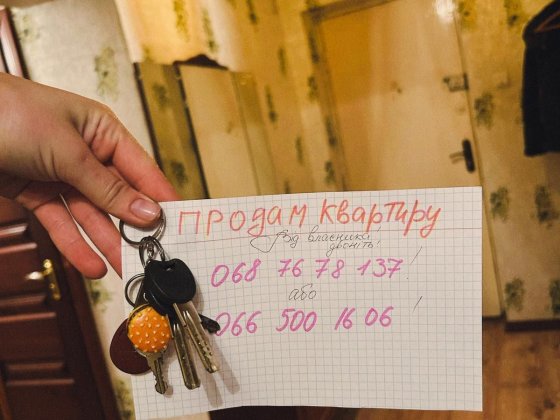 Продам квартиру
Від власника!
дзвоніть!
068 76 78 137!
або
066 500 16 06 !